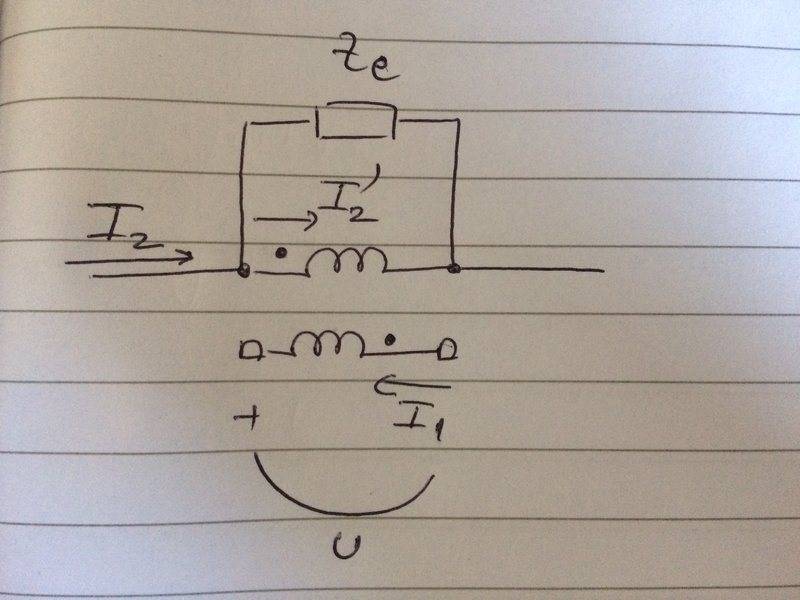 Ze
I2'
I2
+
I1
U